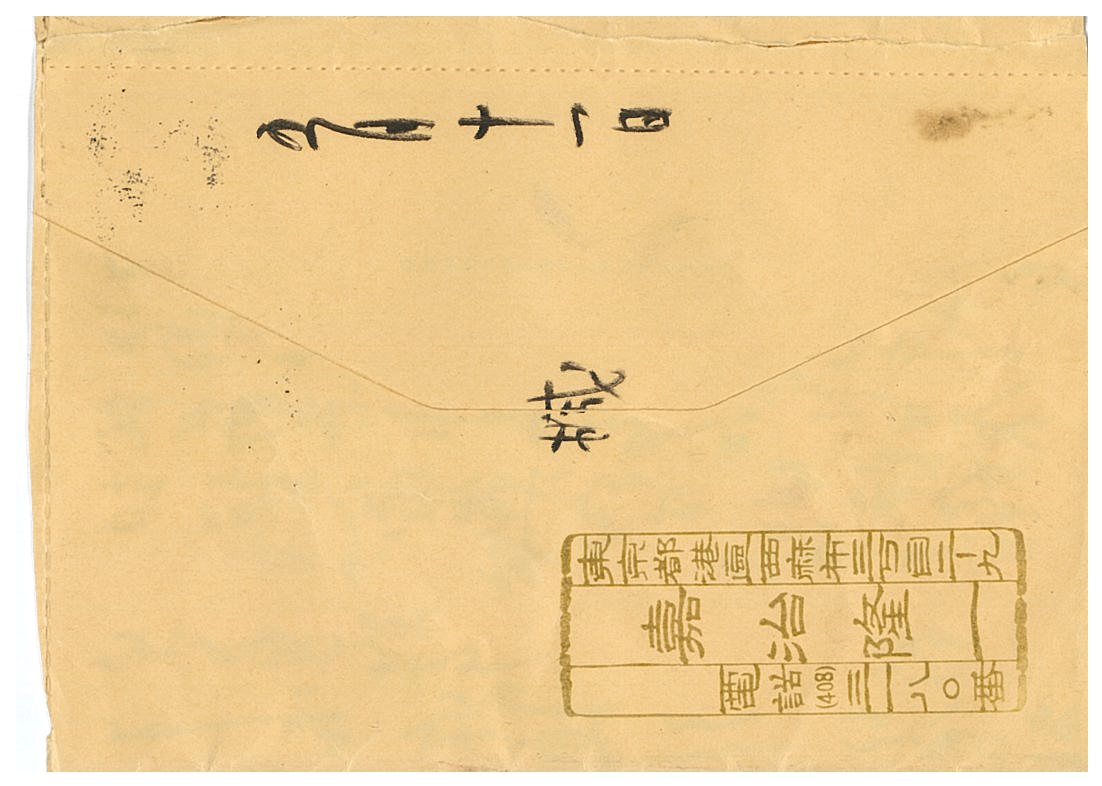 月十一日
緘
東京都港區西麻布三丁目二十九
嘉治隆一
電話(408)三一八〇番